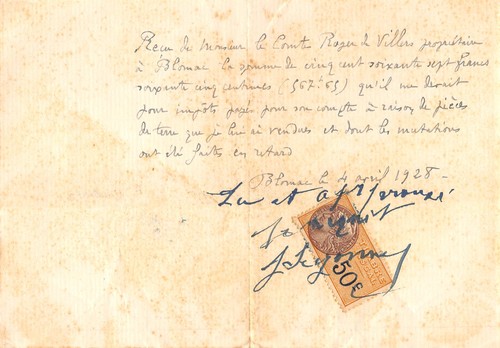 Reçu de Monsieur le Comte Roger de Villers propriétaire
à Blomac la somme de cinq cent soixante sept francs
soixante cinq centimes (567.65) qu'il me devait
pour impôts payés pour son compte à raison de pièces
de terre que je lui ai vendues et dont les mutations
ont été faites en retard
Blomac le 4 avril 1928 -
Lu et approuvé
50c